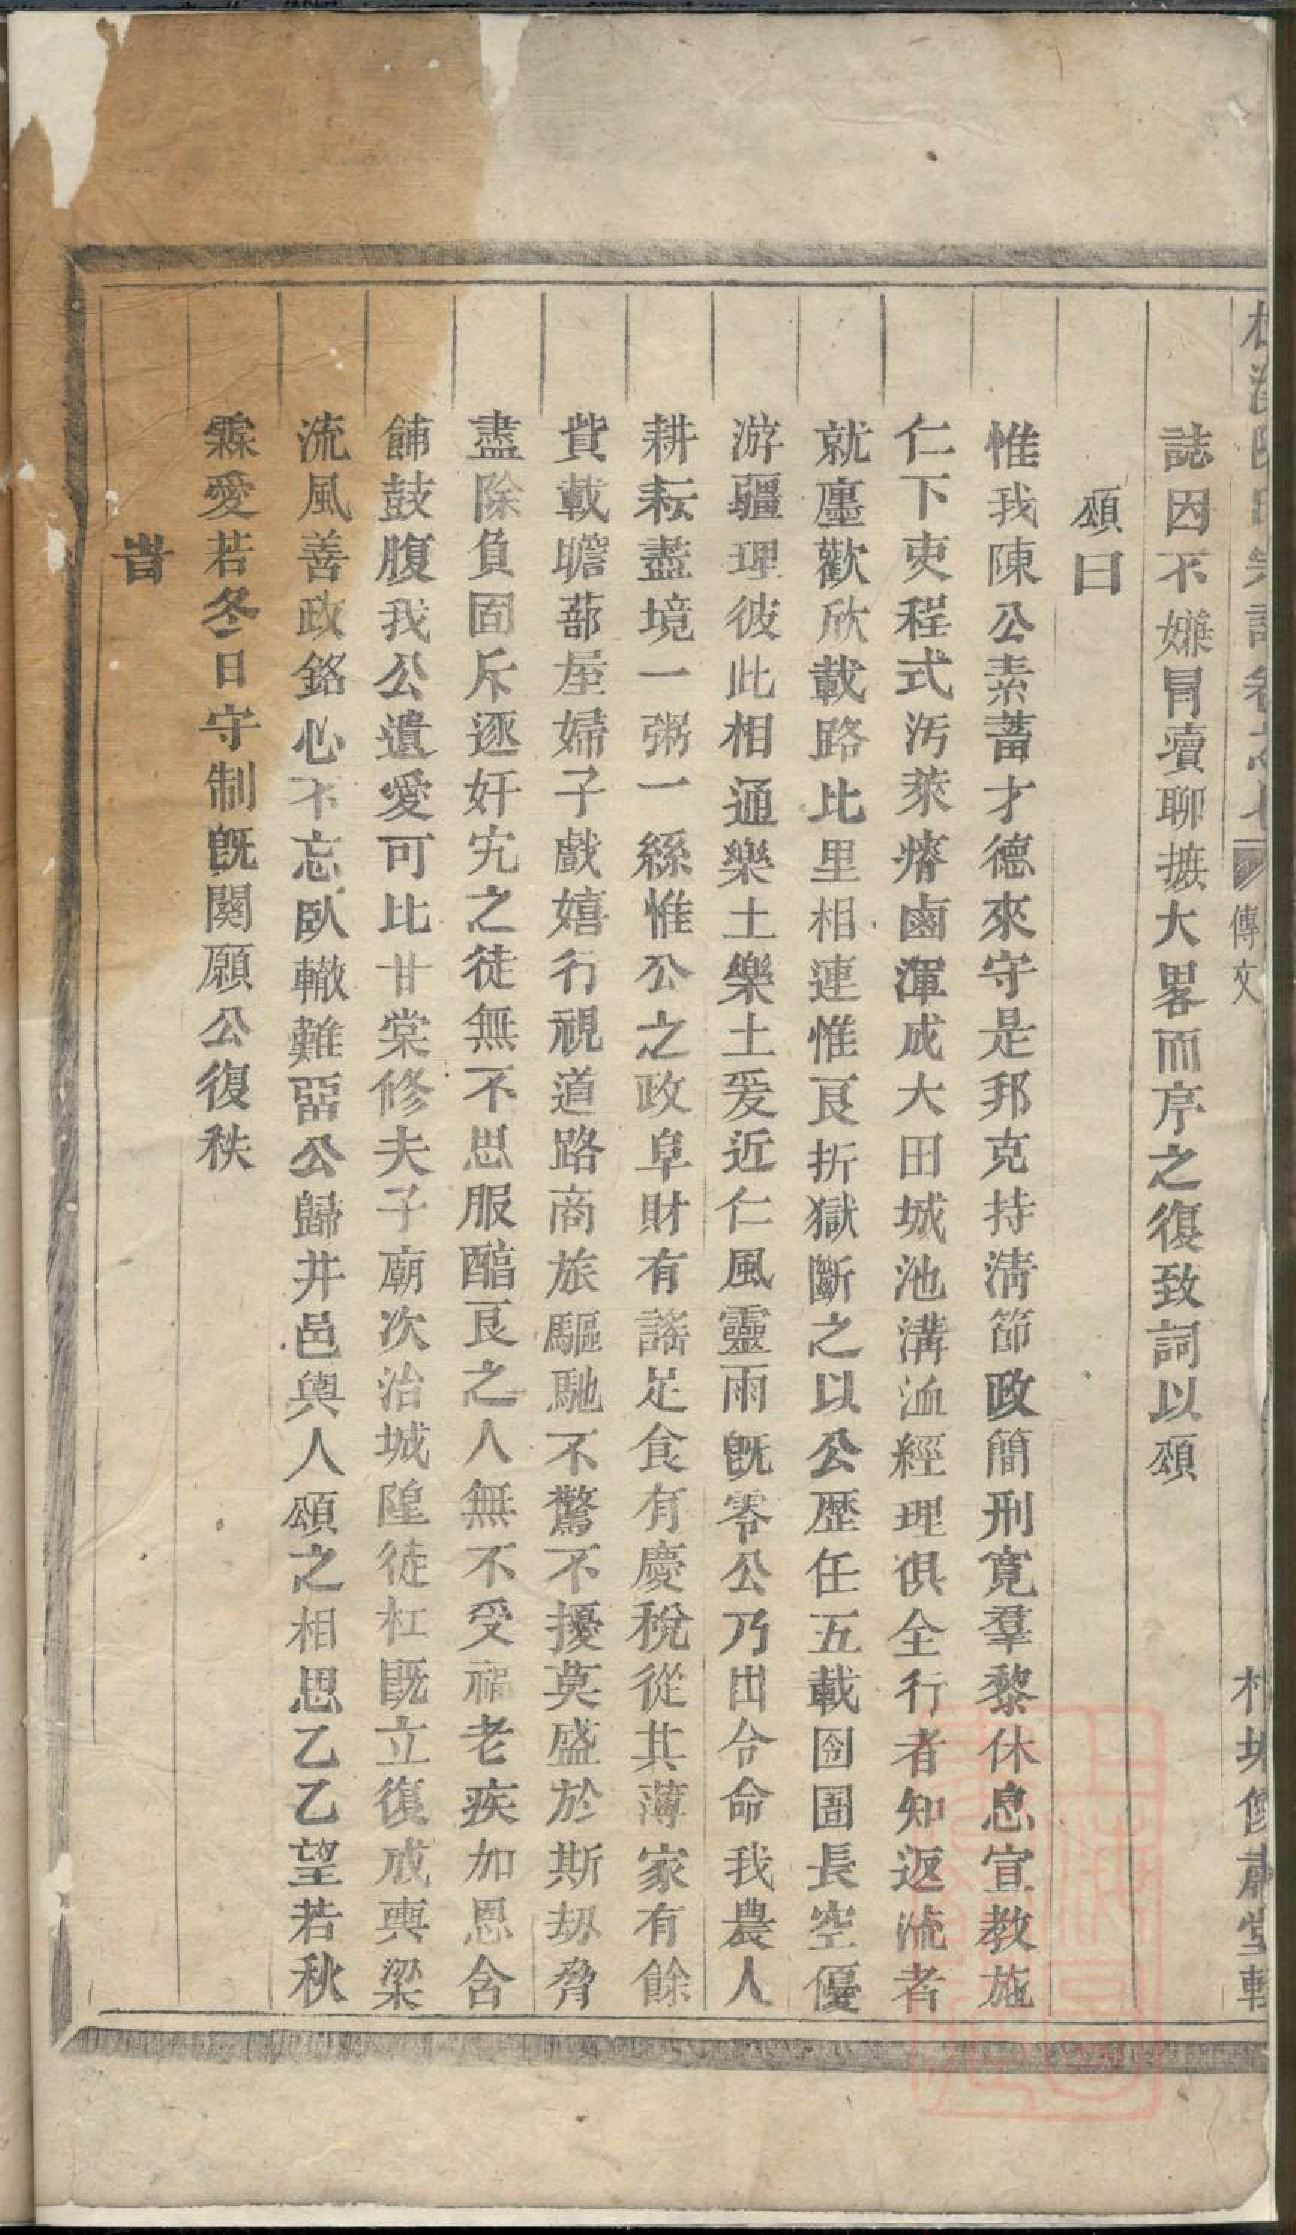 誌因不嫌冐瀆聊摭大畧而序之復致詞以頌
頌曰
惟我陳公素蓄才德來守是邦克持淸節政簡刑寬羣黎休息宣教施
仁下吏程式汚萊瘠鹵渾成大田城池溝洫經理俱全行者知返流者
就廛歡欣載路比里相連惟良折獄斷之以公歷任五載囹圄長空優
游疆理彼此相通樂土樂土爰近仁風靈雨旣零公乃出令命我農人
耕耘盡境一粥一絲惟公之政阜財有謠足食有慶稅從其薄家有餘
貲載瞻蔀屋婦子戲嬉行視道路商旅驅馳不驚不擾莫盛於斯刼脅
盡除負固斥逐奸宄之徒無不思服醕良之人無不受福老疾加恩含
餔鼓腹我公遺愛可比甘棠修夫子廟次治城隍徒杠旣立復成輿梁
流風善政銘心不忘臥轍難畱公歸井邑輿人頌之相思乙乙望若秋
霖愛若冬日守制旣闋願公復秩
旹
傳文